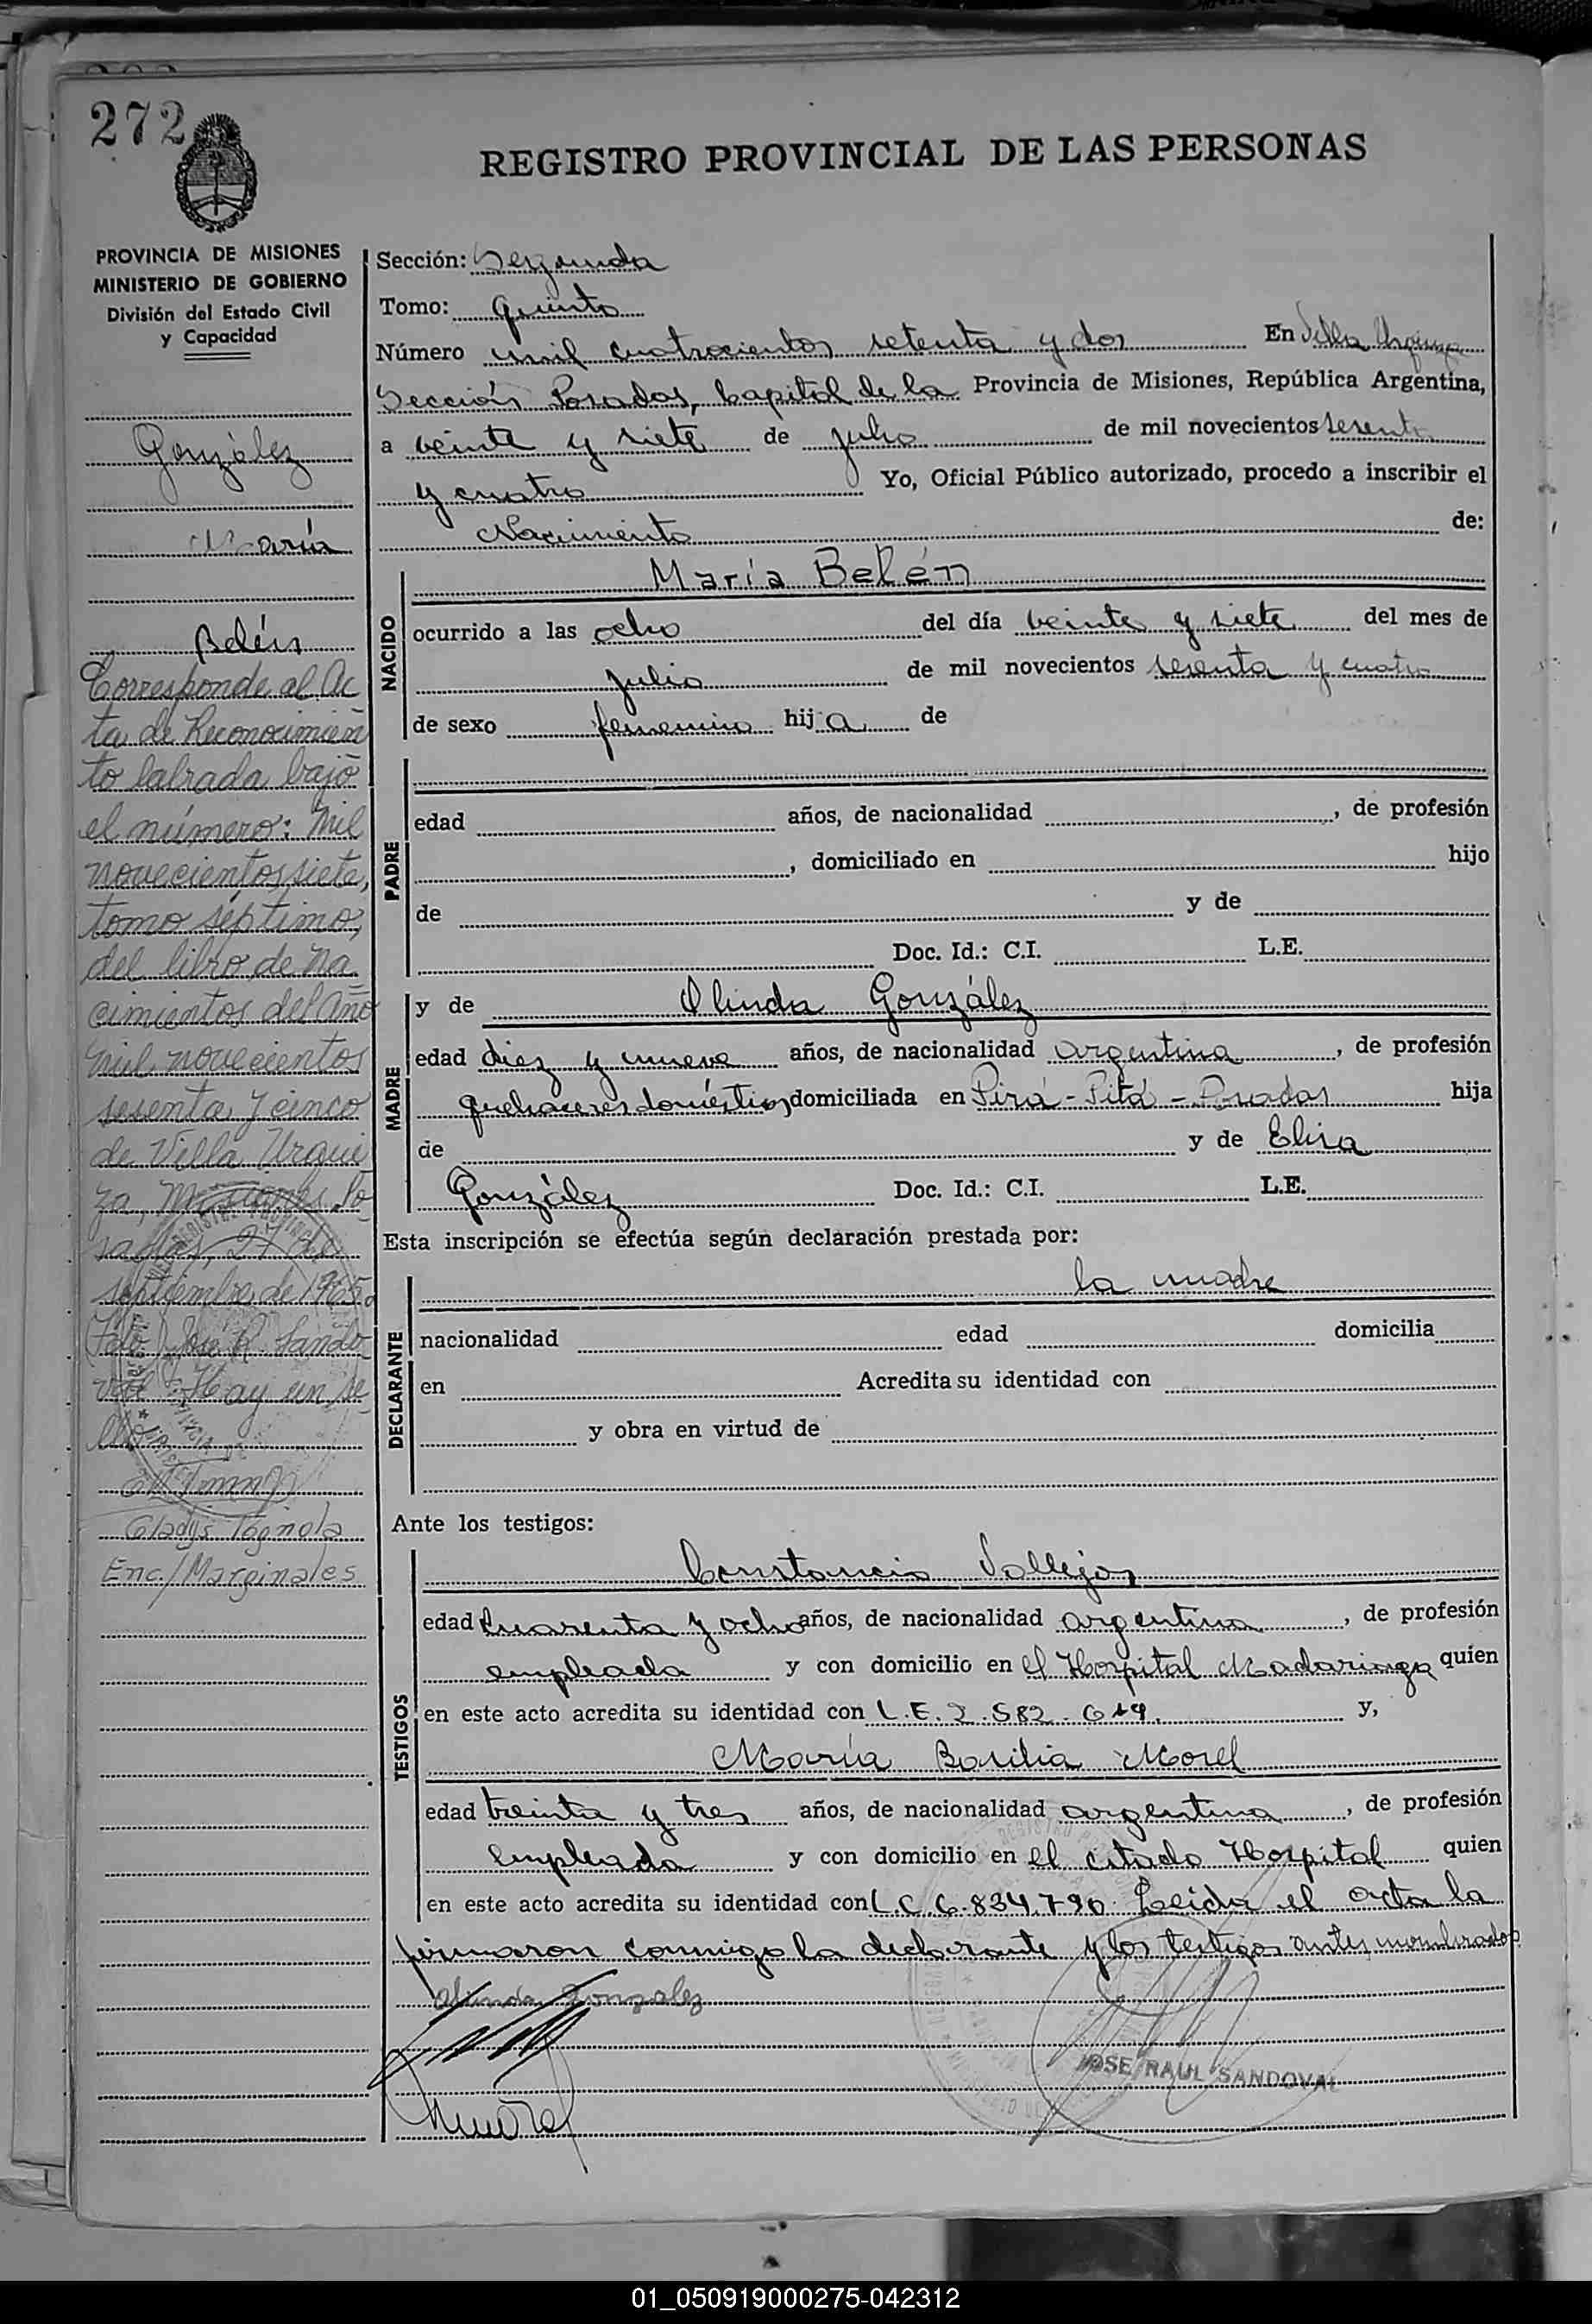 272
REGISTRO PROVINCIAL DE LAS PERSONAS
PROVINCIA DE MISIONES
MINISTERIO DE GOBIERNO
División del Estado Civil
y Capacidad
González
María
Belén
Corresponde al Ac
ta de Reconocimien
to labrada bajo
el número: mil
novecientos siete,
tomo séptimo,
del libro de na
cimientos del año
mil novecientos
sesenta y cinco
de Villa Urqui
za, Misiones. Po-
sadas, 27 de
septiembre de 1965.
Fdo) Jose R. Sando-
val: Hay un se-
llo
Gladys Tognola
Enc./Marginales
Sección: Segunda
Tomo: quinto
Número mil cuatrocientos setenta y dos En Villa Urquiza
Sección Posadas, Capital de la Provincia de Misiones, República Argentina,
a veinte y siete de julio de mil novecientos sesenta
y cuatro Yo, Oficial Público autorizado, procedo a inscribir el
Nacimiento de:
NACIDO
María Belén
ocurrido a las ocho del día veinte y siete del mes de
julio de mil novecientos sesenta y cuatro
de sexo femenino hija de
PADRE
edad años, de nacionalidad , de profesión
, domiciliado en hijo
de y de
Doc. Id.: C.I. L.E.
MADRE
y de Olinda González
edad diez y nueve años, de nacionalidad argentina, de profesión
quehaceres domésticos domiciliada en Pirá-Pitá-Posadas hija
de y de Elisa
González Doc. Id.: C.I. L.E.
Esta inscripción se efectúa según declaración prestada por:
DECLARANTE
la madre
nacionalidad edad domicilia
en Acredita su identidad con
y obra en virtud de
Ante los testigos:
TESTIGOS
Constancio Vallejos
edad cuarenta y ocho años, de nacionalidad argentina, de profesión
empleada y con domicilio en el Hospital Madariaga quien
en este acto acredita su identidad con L.E. 2.582.619. y,
María Basilia Morel
edad treinta y tres años, de nacionalidad argentina, de profesión
empleada y con domicilio en el citado Hospital quien
en este acto acredita su identidad con L.C. 6.834.790. Leída el acta la
firmaron conmigo la declarante y los testigos antes nombrados
Olinda Gonzalez
JOSE RAUL SANDOVAL
01_050919000275-042312